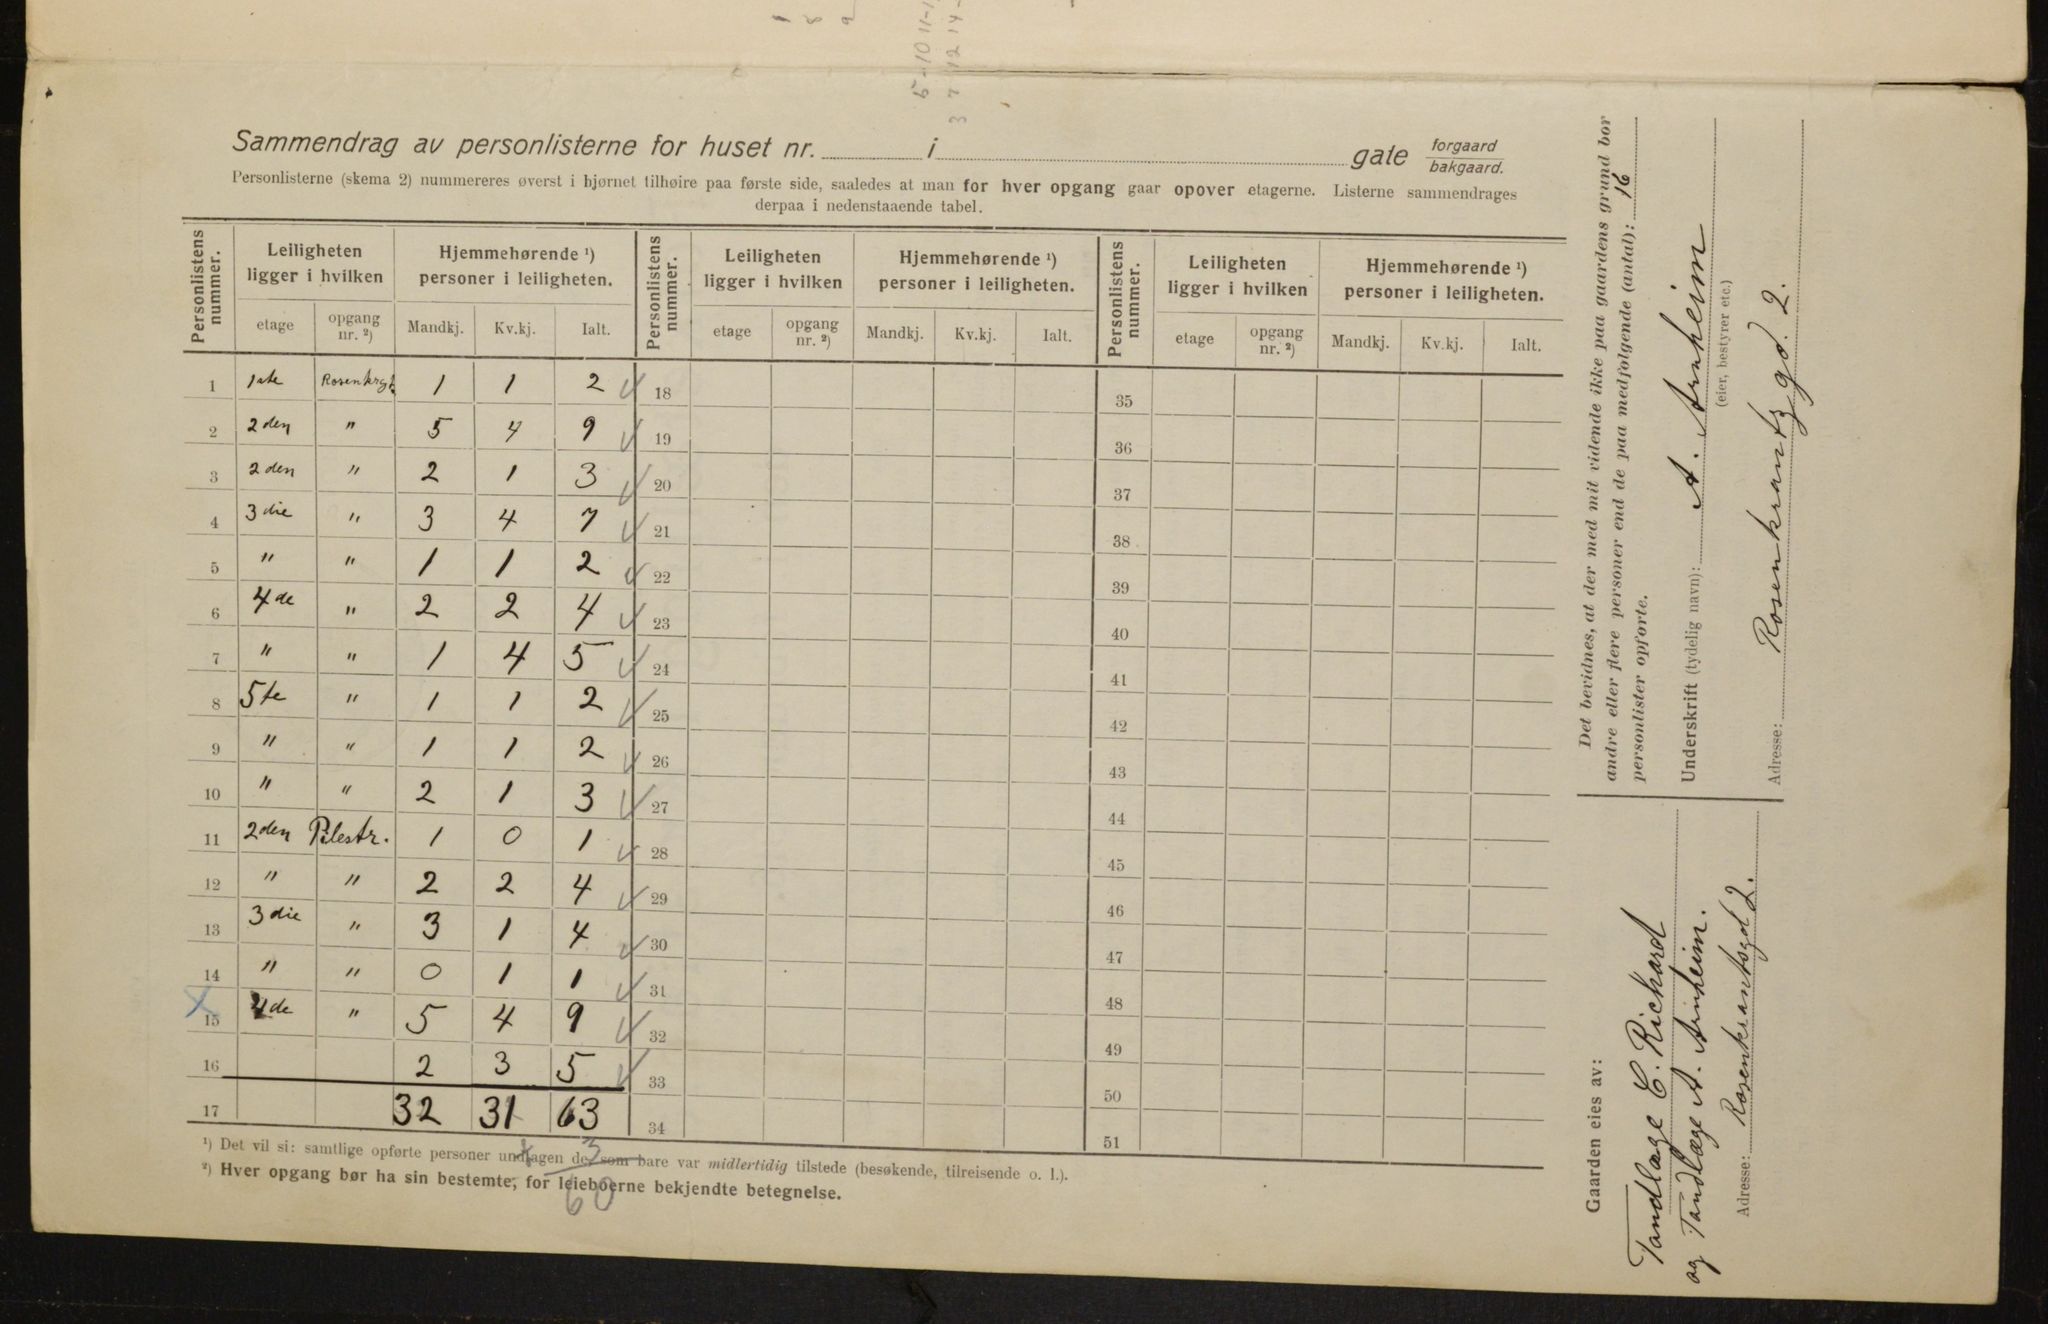 5-10 11-1
3 7 12 14-
Sammendrag av personlisterne for huset nr. i gate forgaard bakgaard.
Personlisterne (skema 2) nummereres øverst i hjørnet tilhøire paa første side, saaledes at man for hver opgang gaar opover etagerne. Listerne sammendrages
derpaa i nedenstaaende tabel.
Personlistens nummer. Leiligheten ligger i hvilken Hjemmehørende ¹) personer i leiligheten. Personlistens nummer. Leiligheten ligger i hvilken Hjemmehørende ¹) personer i leiligheten. Personlistens nummer. Leiligheten ligger i hvilken Hjemmehørende ¹) personer i leiligheten.
etage opgang nr. ²) Mandkj. Kv.kj. Ialt. etage opgang nr. ²) Mandkj. Kv.kj. Ialt. etage opgang nr. ²) Mandkj. Kv.kj. Ialt.
1 1ste Rosenkrgt. 1 1 2 18 35
2 2den " 5 4 9 19 36
3 2den " 2 1 3 20 37
4 3die " 3 4 7 21 38
5 " " 1 1 2 22 39
6 4de " 2 2 4 23 40
7 " " 1 4 5 24 41
8 5te " 1 1 2 25 42
9 " " 1 1 2 26 43
10 " " 2 1 3 27 44
11 2den Pilestr. 1 0 1 28 45
12 " " 2 2 4 29 46
13 3die " 3 1 4 30 47
14 " " 0 1 1 31 48
15 4de " 5 4 9 32 49
16 2 3 5 33 50
17 32 31 63 34 51
¹) Det vil si: samtlige opførte personer undtagen de som bare var midlertidig tilstede (besøkende, tilreisende o. l.).
²) Hver opgang bør ha sin bestemte, for leieboerne bekjendte betegnelse.
3
60
Det bevidnes, at der med mit vidende ikke paa gaardens grund bor
andre eller flere personer end de paa medfølgende (antal): 16
personlister opførte.
Underskrift (tydelig navn): A. Arnheim
(eier, bestyrer etc.)
Adresse: Rosenkrantzgd. 2.
Gaarden eies av:
Tandlæge C. Richard
og Tandlæge A. Arnheim.
Adresse: Rosenkrantsgd 2.